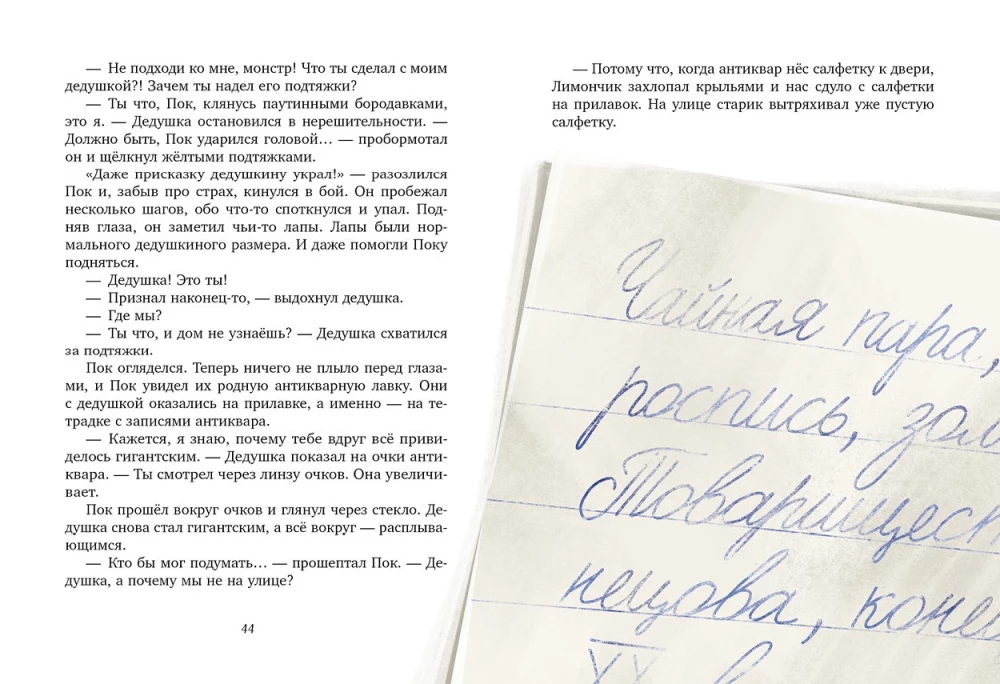 — Не подходи ко мне, монстр! Что ты сделал с моим
дедушкой?! Зачем ты надел его подтяжки?
— Ты что, Пок, клянусь паутинными бородавками,
это я. — Дедушка остановился в нерешительности. —
Должно быть, Пок ударился головой… — пробормотал
он и щёлкнул жёлтыми подтяжками.
«Даже присказку дедушкину украл!» — разозлился
Пок и, забыв про страх, кинулся в бой. Он пробежал
несколько шагов, обо что-то споткнулся и упал. Под-
няв глаза, он заметил чьи-то лапы. Лапы были нор-
мального дедушкиного размера. И даже помогли Поку
подняться.
— Дедушка! Это ты!
— Признал наконец-то, — выдохнул дедушка.
— Где мы?
— Ты что, и дом не узнаёшь? — Дедушка схватился
за подтяжки.
Пок огляделся. Теперь ничего не плыло перед глаза-
ми, и Пок увидел их родную антикварную лавку. Они
с дедушкой оказались на прилавке, а именно — на те-
традке с записями антиквара.
— Кажется, я знаю, почему тебе вдруг всё приви-
делось гигантским. — Дедушка показал на очки анти-
квара. — Ты смотрел через линзу очков. Она увеличи-
вает.
Пок прошёл вокруг очков и глянул через стекло. Де-
душка снова стал гигантским, а всё вокруг — расплыва-
ющимся.
— Кто бы мог подумать… — прошептал Пок. — Де-
душка, а почему мы не на улице?
44
— Потому что, когда антиквар нёс салфетку к двери,
Лимончик захлопал крыльями и нас сдуло с салфетки
на прилавок. На улице старик вытряхивал уже пустую
салфетку.
Чайная пара,
роспись, зол
Товарищест
нецова, коне
XX в